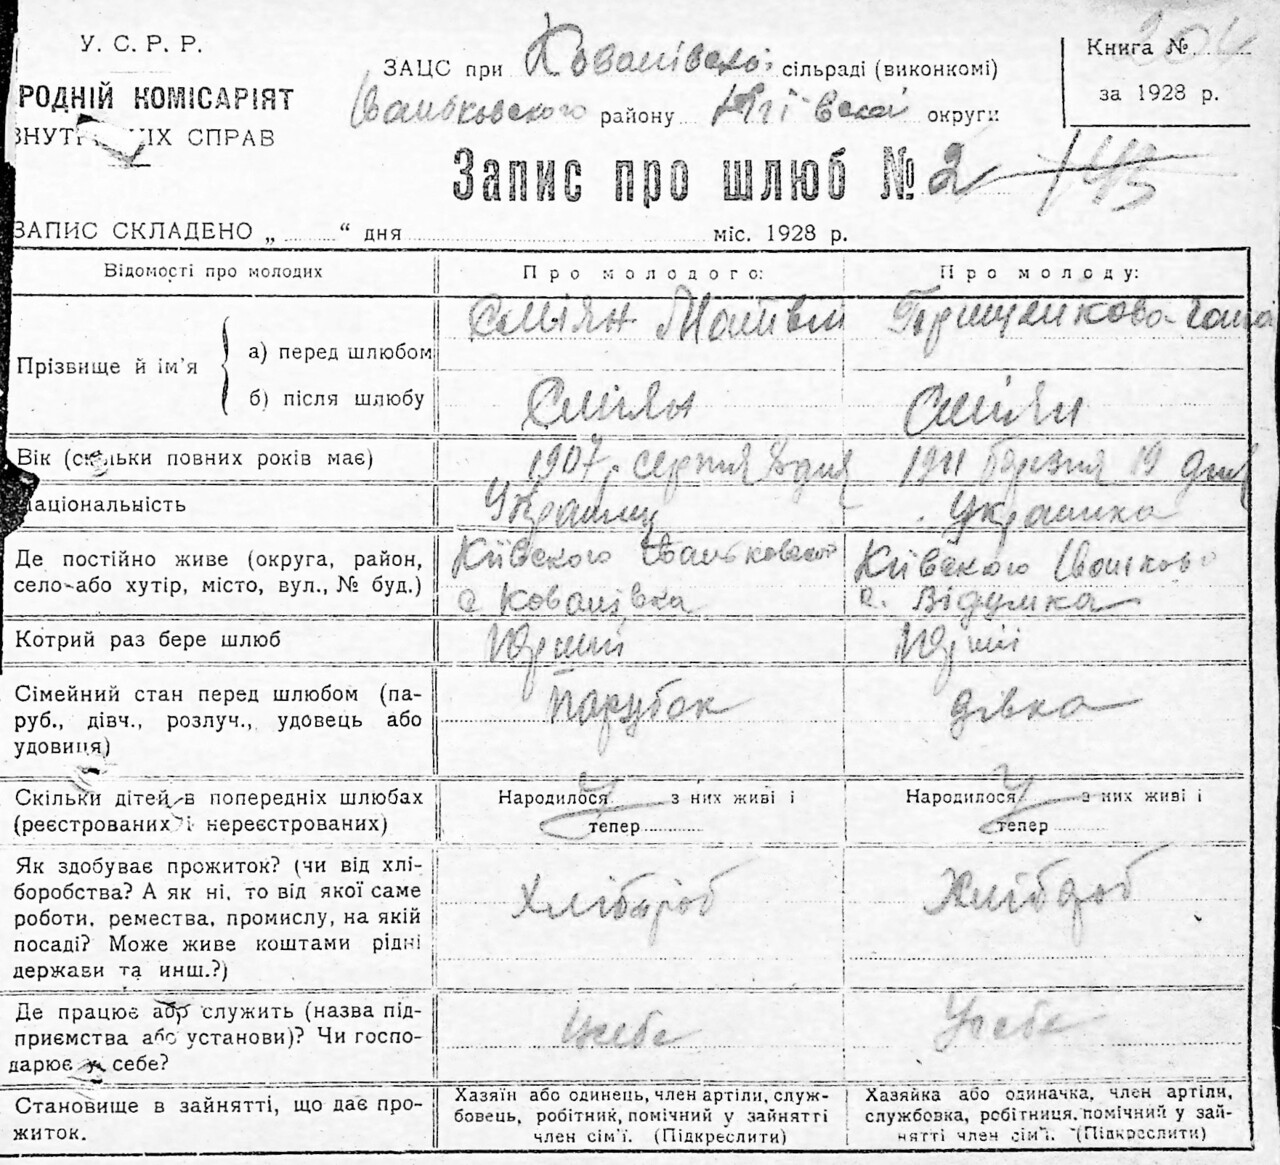 У. С. Р. Р.
РОДНІЙ КОМІСАРІЯТ
ВНУТР ІХ СПРАВ
ЗАЦС при Ковалівской сільраді (виконкомі)
району округи
Книга №
за 1928 р.
Запис про шлюб № 2
ЗАПИС СКЛАДЕНО „ “ дня міс. 1928 р.
Відомості про молодих Про молодого: Про молоду:
Прізвище й ім'я
а) перед шлюбом Сміян
б) після шлюбу Сміян Сміян
Вік (скільки повних років має) 1907 серпня 8 дня 1911 березня 19 дня
аціональність Украінец Украинка
Де постійно живе (округа, район, село або хутір, місто, вул., № буд.)
Київского Київского
с Ковалівка с. Відумка
Котрий раз бере шлюб Перший Перші
Сімейний стан перед шлюбом (па-
руб., дівч., розлуч., удовець або
удовиця)
парубок дівка
Скільки дітей в попередніх шлюбах
(реєстрованих і нереєстрованих)
Народилося з них живі і
тепер
Народилося з них живі і
тепер
Як здобуває прожиток? (чи від хлі-
боробства? А як ні, то від якої саме
роботи, ремества, промислу, на якій
посаді? Може живе коштами рідні
держави та инш.?)
Хлібороб Хлібороб
Де працює або служить (назва під-
приємства або установи)? Чи госпо-
дарює у себе?
Усебе Усебе
Становище в зайнятті, що дає про-
житок.
Хазяїн або одинець, член артілі, служ-
бовець, робітник, помічний у зайнятті
член сім'ї. (Підкреслити)
Хазяйка або одиначка, член артіли,
службовка, робітниця, помічний у зай-
нятті член сім'ї. (Підкреслити)